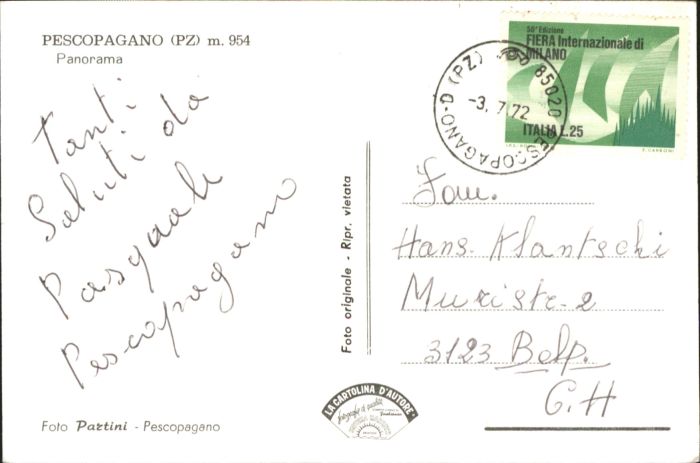 PESCOPAGANO (PZ) m. 954
Panorama
Tanti
Saluti da
Pasquale
Pescopagano
Foto Partini - Pescopagano
Foto originale - Ripr. vietata
LA CARTOLINA D'AUTORE
50ª Edizione
FIERA Internazionale di
MILANO
ITALIA L.25
E. CARBONI
85020 PESCOPAGANO-D (PZ)
-3. 7. 72
Fam.
Hans Klantschi
Muristr. 2
3123 Belp.
C.H